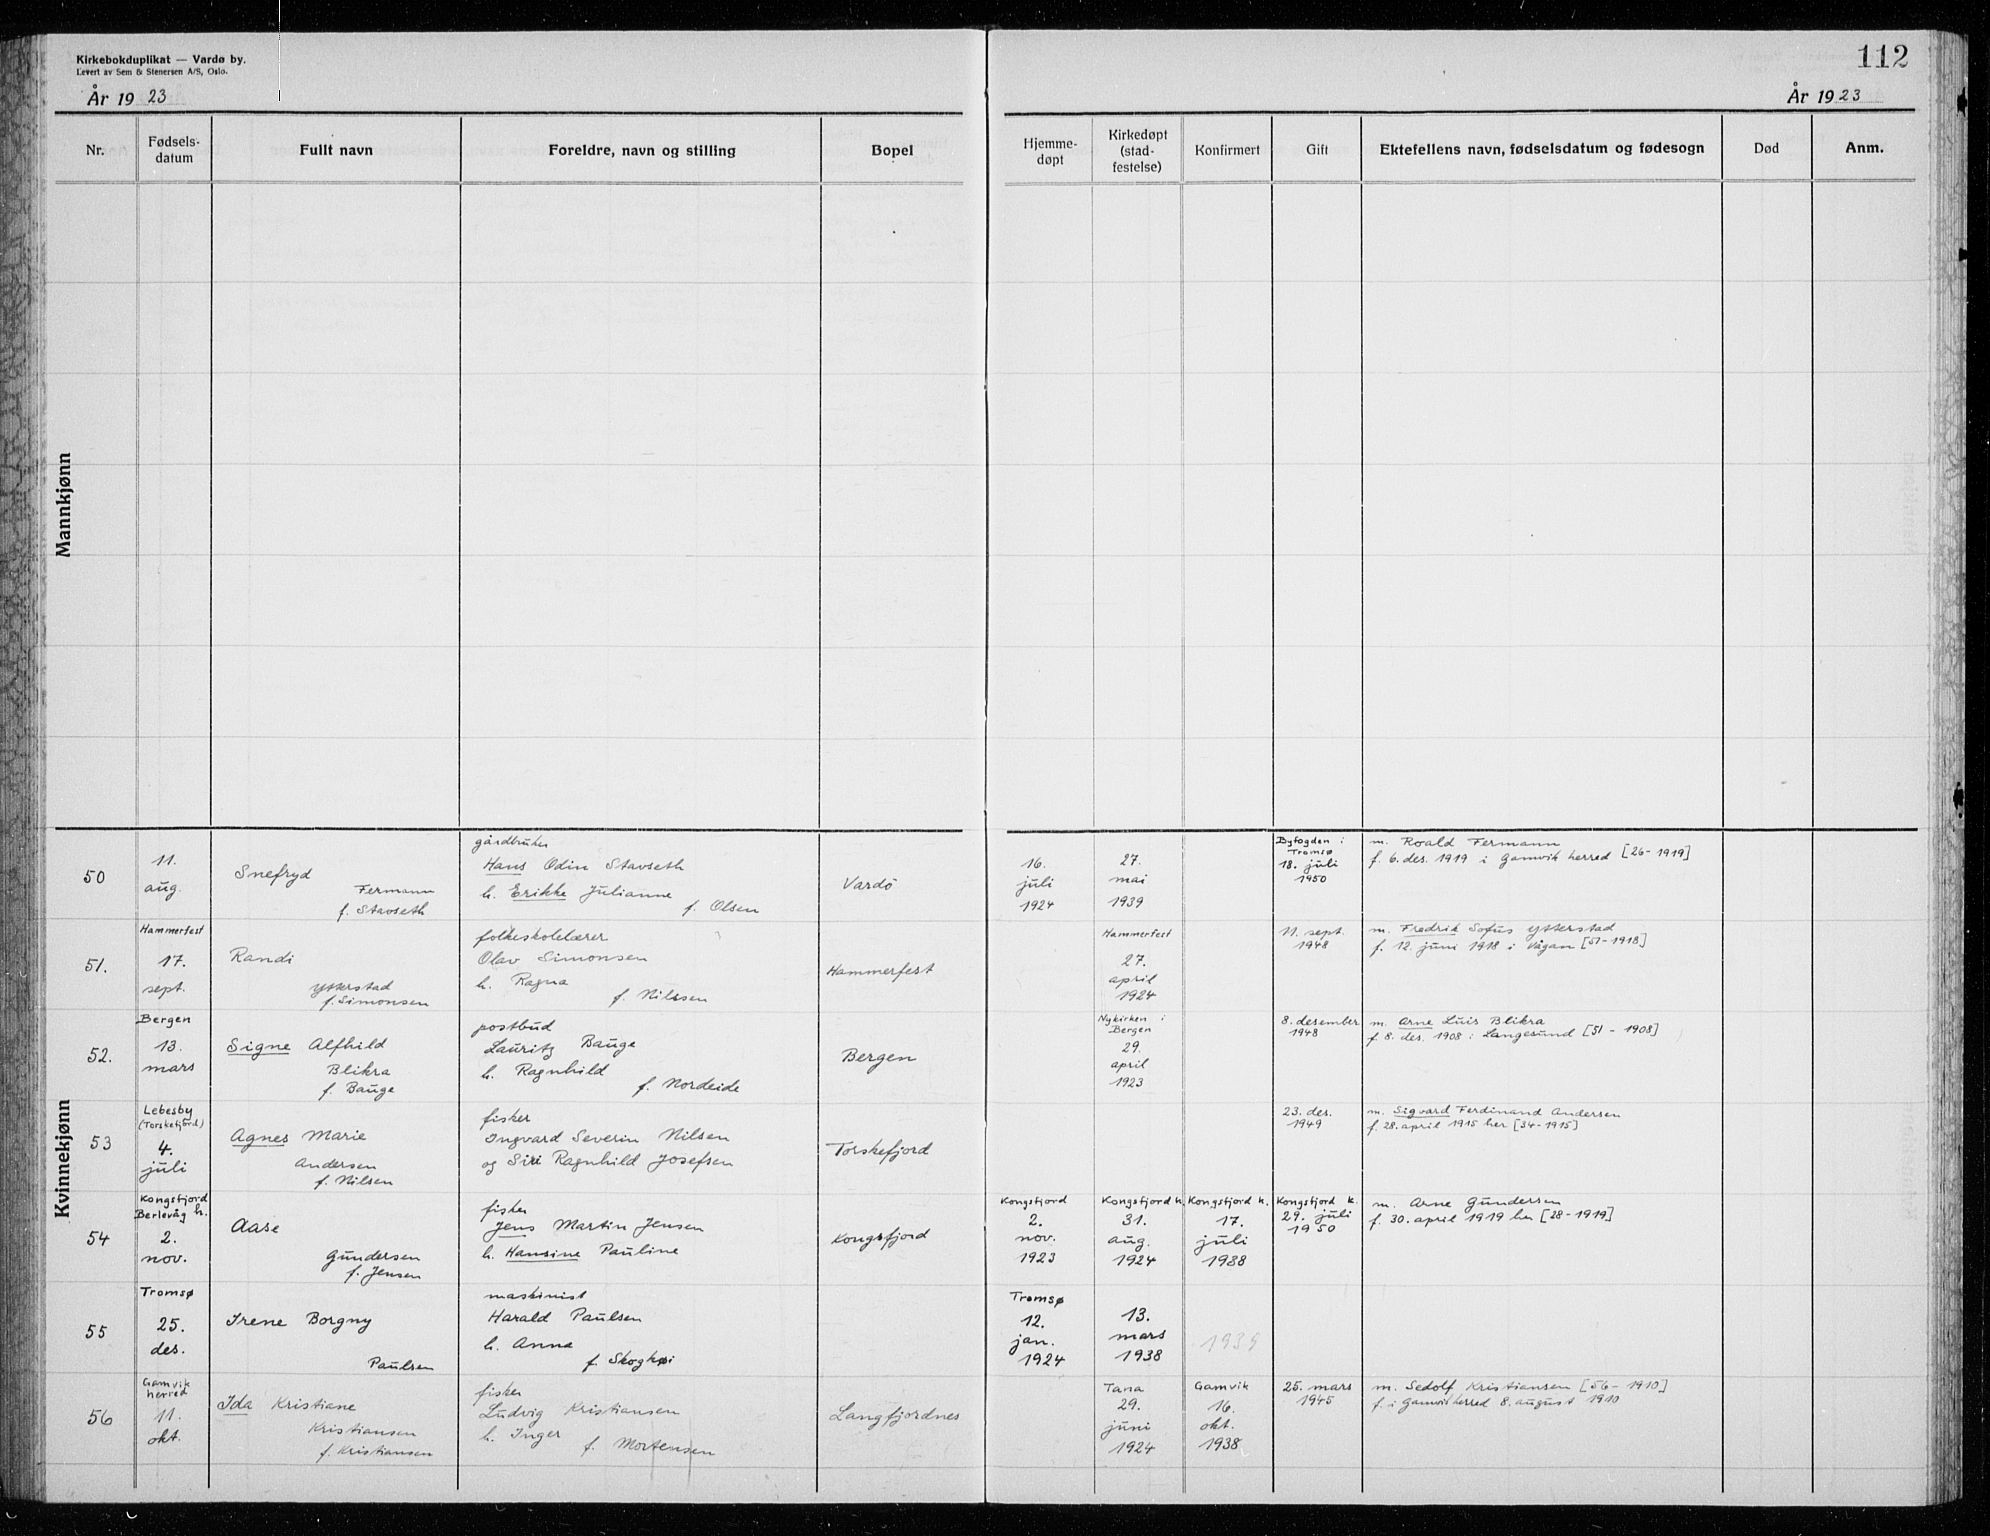 Kirkebokduplikat — Vardø by.
Levert av Sem & Stenersen A/S, Oslo.
År 19 23
112
År 19 23
Nr.
Fødsels-
datum
Fullt navn
Foreldre, navn og stilling
Bopel
Hjemme-
døpt
Kirkedøpt
(stad-
festelse)
Konfirmert
Gift
Ektefellens navn, fødselsdatum og fødesogn
Død
Anm.
Mannkjønn
Kvinnekjønn
50
11.
aug.
Snefryd
Fermann
f. Stavseth
gårdbruker
Hans Odin Stavseth
h. Erikke Julianne
f. Olsen
Vardö
16.
juli
1924
27.
mai
1939
Byfogden i
Tromsø
18. juli
1950
m. Roald Fermann
f. 6. des. 1919 i Gamvik herred [26-1919]
51.
Hammerfest
17.
sept.
Randi
Ytterstad
f. Simonsen
folkeskolelærer
Olav Simonsen
h. Ragna
f. Nilssen
Hammerfest
Hammerfest
27.
april
1924
11. sept.
1948
m. Fredrik Sofus Ytterstad
f. 12. juni 1918 i Vågan [51-1918]
52.
Bergen
13.
mars
Signe Alfhild
Blikra
f. Bauge
postbud
Lauritz Bauge
h. Ragnhild
f. Nordeide
Bergen
Nykirken i
Bergen
29.
april
1923
8. desember
1948
m. Arne Luis Blikra
f. 8. des. 1908 i Langesund [51 - 1908]
53
Lebesby
(Torskefjord)
4.
juli
Agnes Marie
Andersen
f. Nilsen
fisker
Ingvard Severin Nilsen
og Siri Ragnhild Josefsen
Torskefjord
23. des.
1949
m. Sigvard Ferdinand Andersen
f. 28. april 1915 her [34-1915]
54
Kongsfjord
Berlevåg h.
2.
nov.
Aase
Gundersen
f. Jensen
fisker
Jens Martin Jensen
h. Hansine Pauline
Kongsfjord
Kongsfjord
2.
nov.
1923
Kongsfjord k.
31.
aug.
1924
Kongsfjord k.
17.
juli
1938
Kongsfjord k.
29. juli
1950
m. Arne Gundersen
f. 30. april 1919 her [28-1919]
55
Tromsø
25.
des.
Irene Borgny
Paulsen
maskinist
Harald Paulsen
h. Anna
f. Skoghøi
Tromsø
12.
jan.
1924
13.
mars
1938
1939
56
Gamvik
herred
11.
okt.
Ida Kristiane
Kristiansen
f. Kristiansen
fisker
Ludvig Kristiansen
h. Inger
f. Mortensen
Langfjordnes
Tana
29.
juni
1924
Gamvik
16.
okt.
1938
25. mars
1945
m. Sedolf Kristiansen [56-1910]
f. i Gamvik herred 8. august 1910